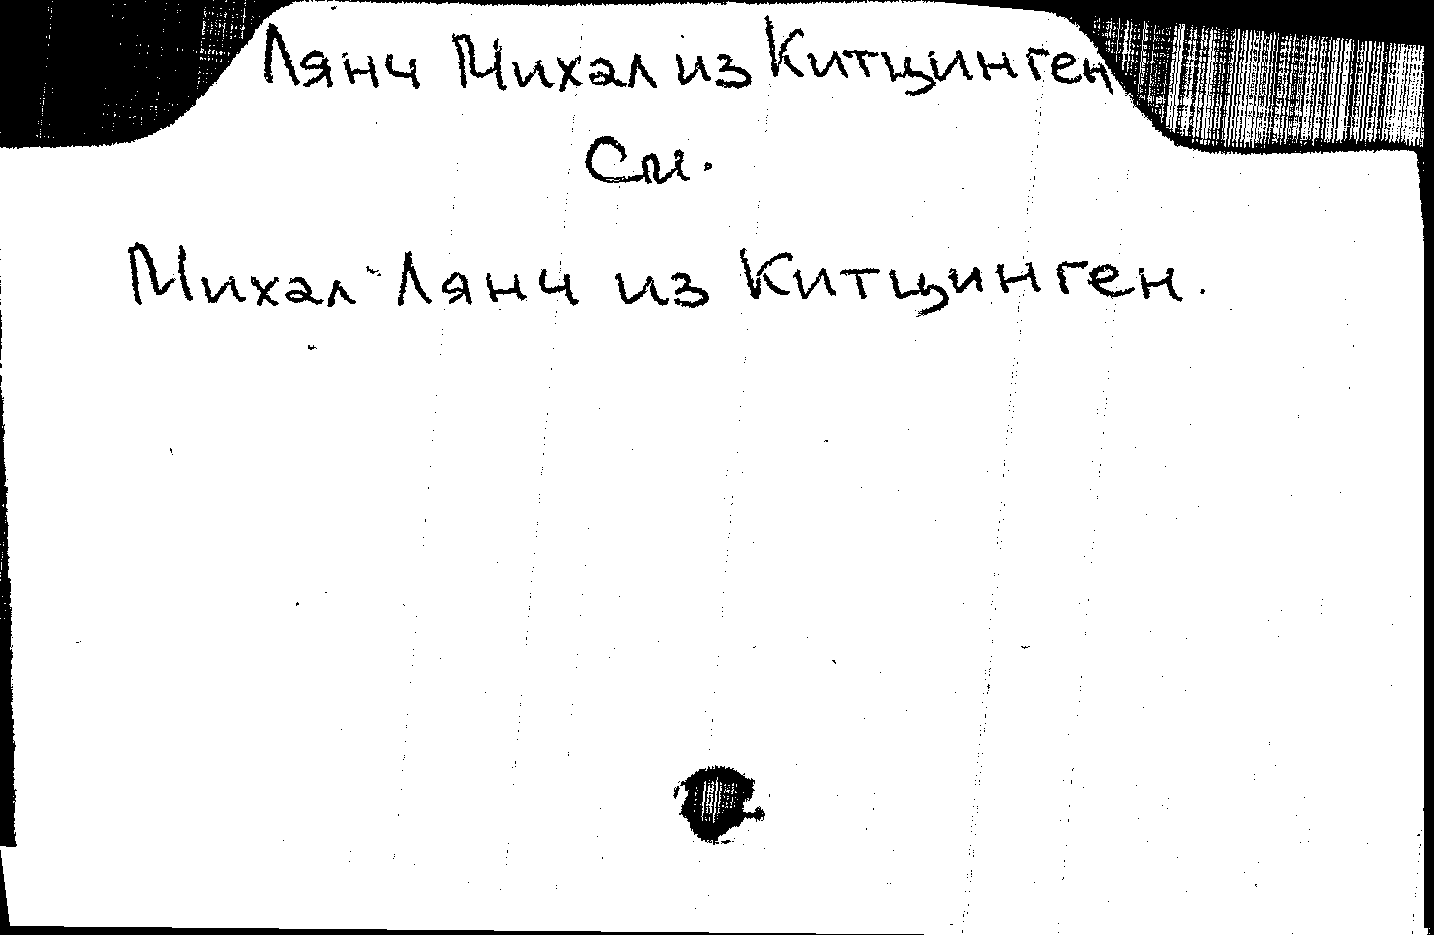 Лянч Михал из Китцинген
См.
Михал Лянч из Китцинген.